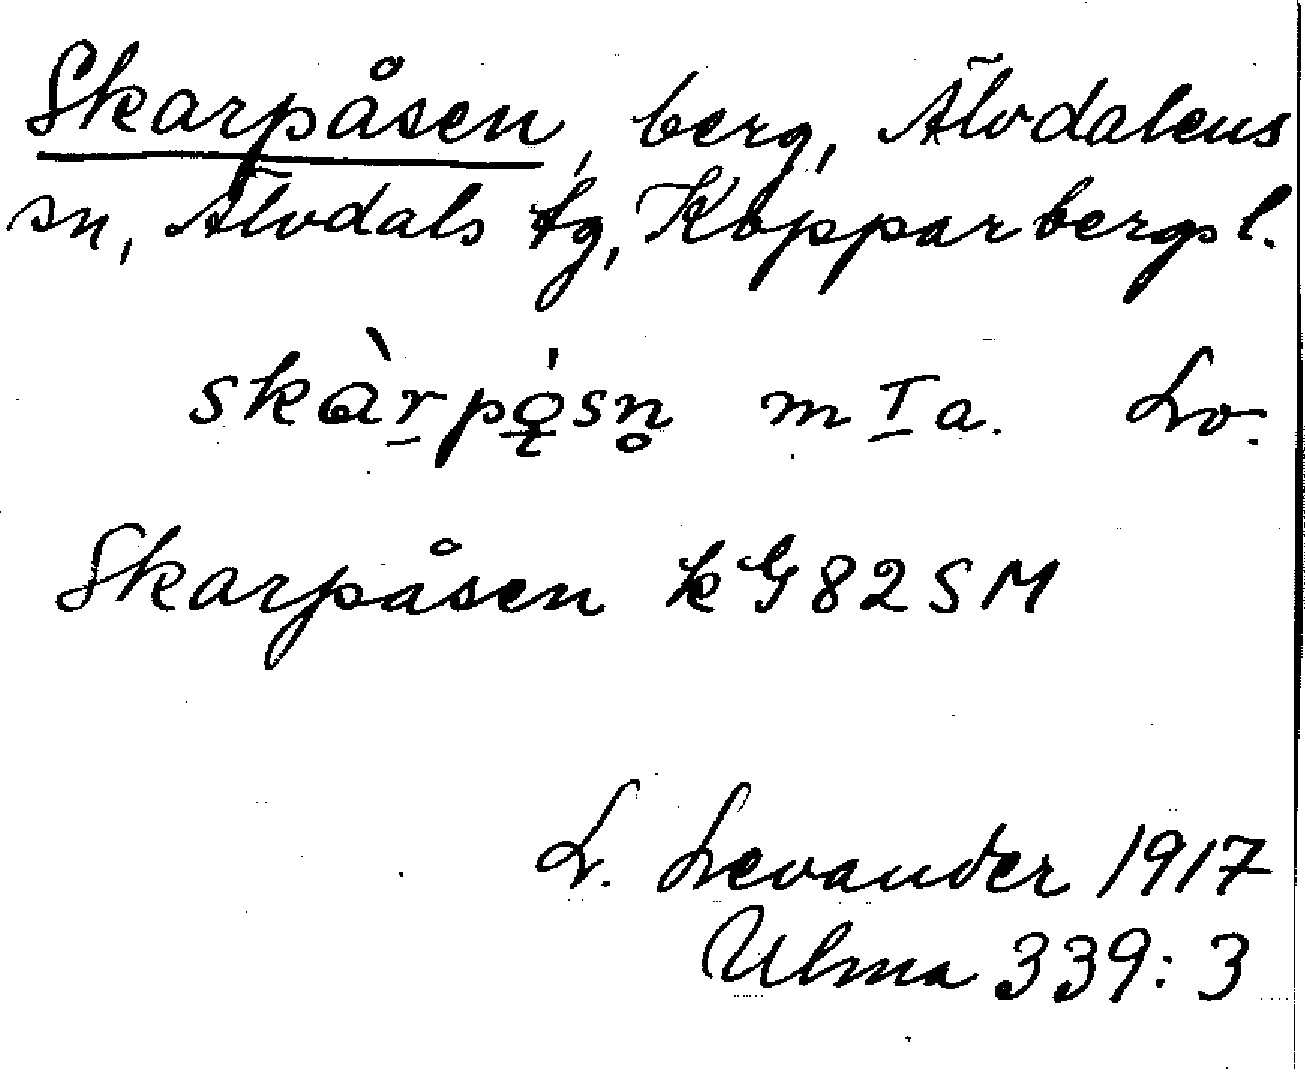 Skarpåsen, berg, Älvdalens
sn, Älvdals tg, Kopparbergs l.
skàr̠pǫ̠́sn̥ m I a. Lv.
Skarpåsen k G 82 SM
L. Levander 1917
Ulma 339:3